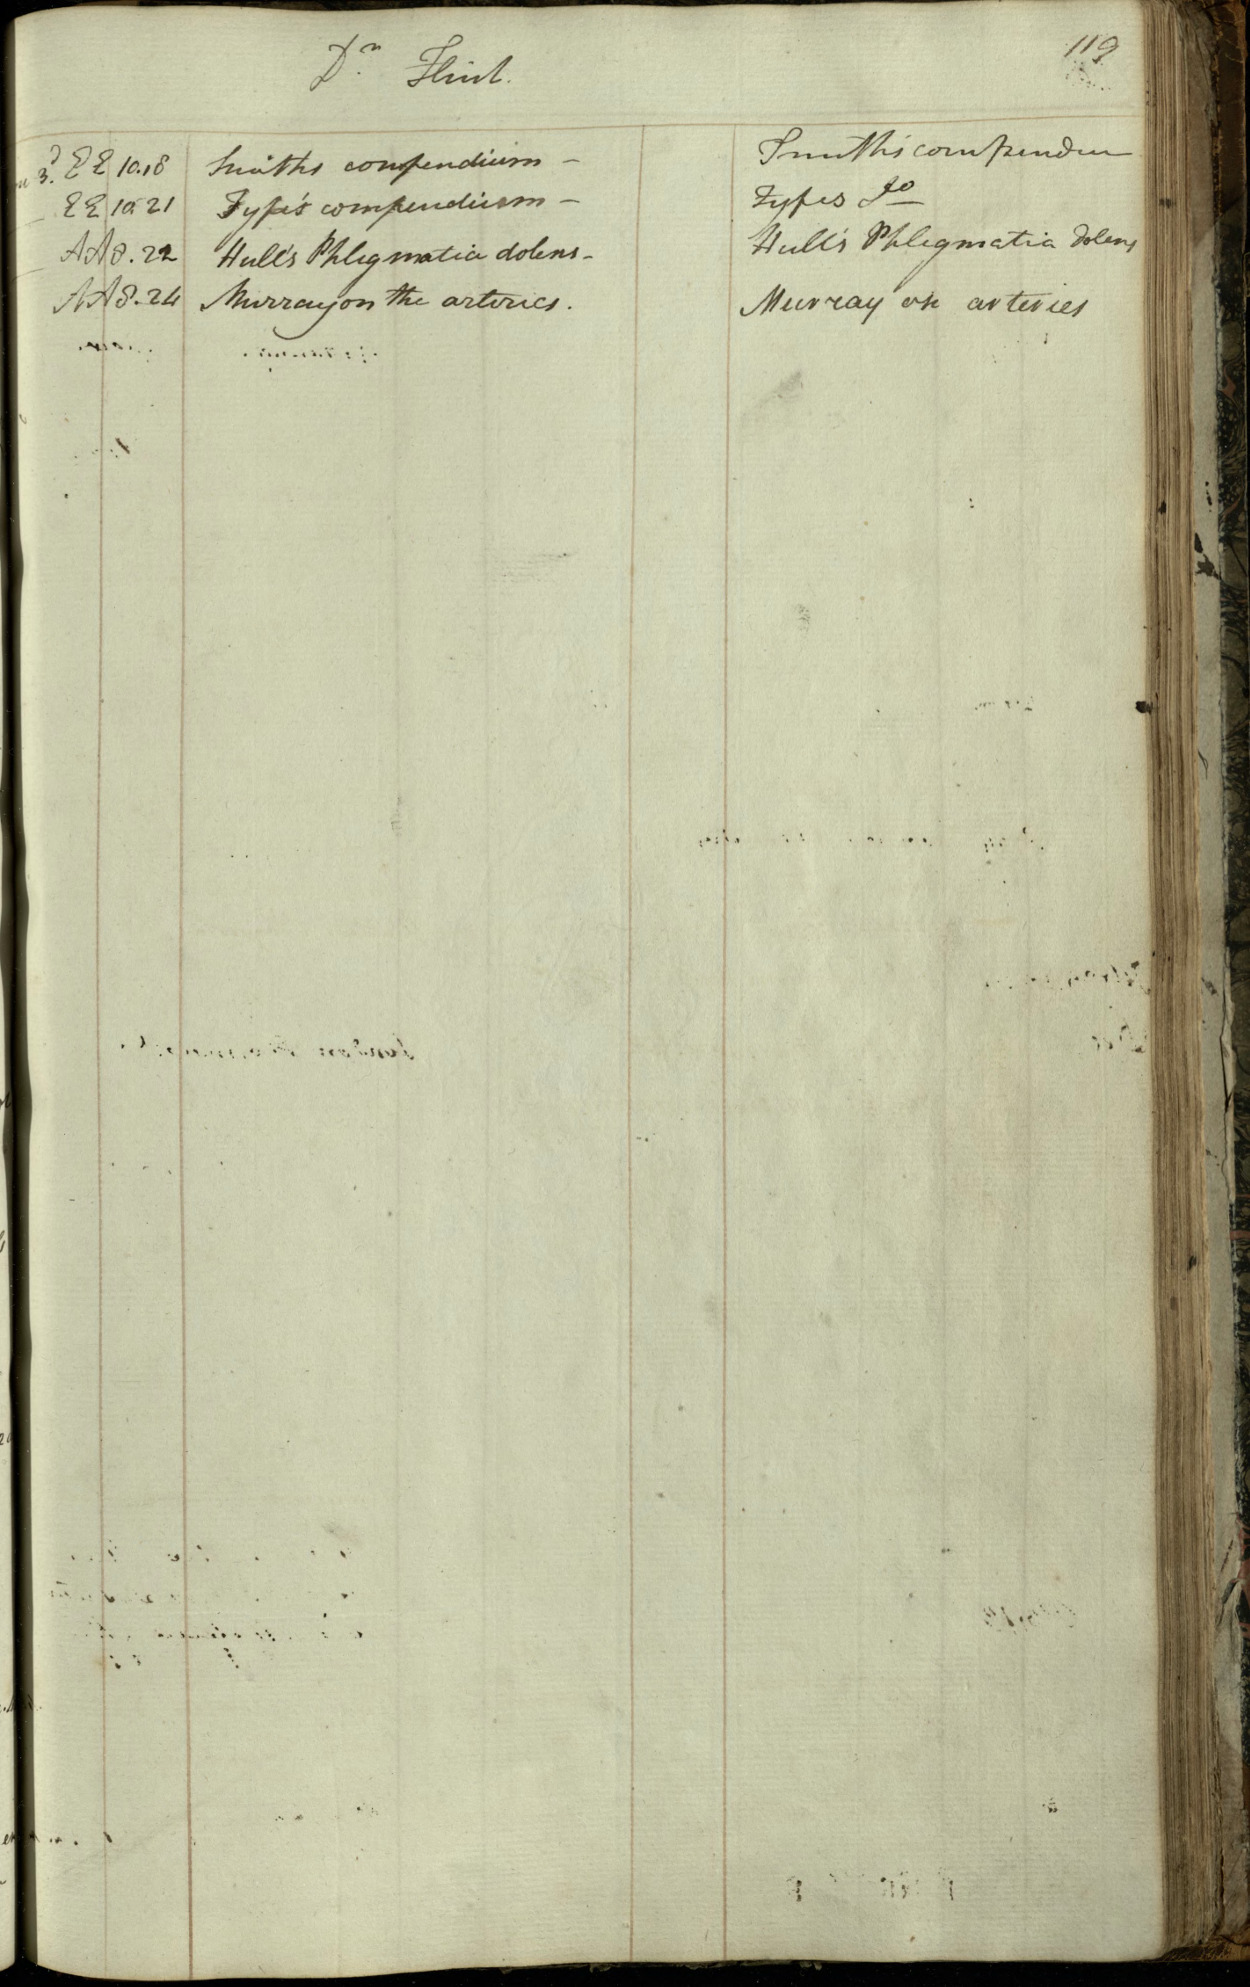 119
Dr. Flint.
3. EE 10.18 Smiths compendium – Smith's compendium
EE 10.21 Fyfe's compendium – Fyfes Do
AA 8.22 Hull's Phlegmatia dolens – Hull's Phlegmatia dolens
AA 8.24 Murray on the arteries. Murray on arteries